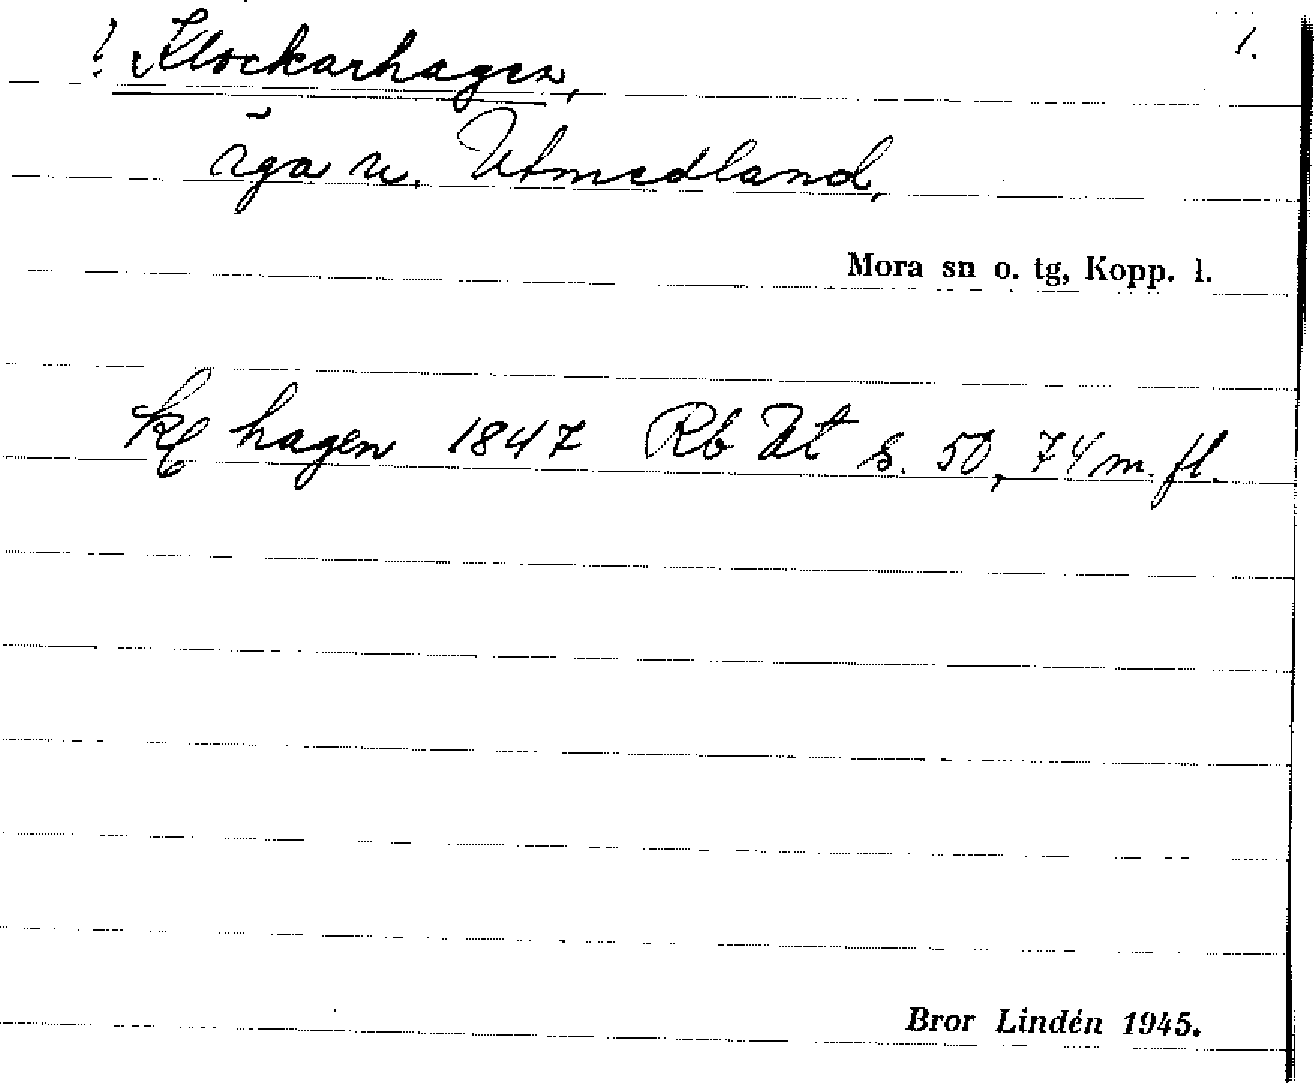 ! Klockarhagen, 1.
äga u. Utmedland,
Mora sn o. tg, Kopp. l.
hagen 1847 Rb Ut s. 50, 74 m. fl.
Bror Lindén 1945.